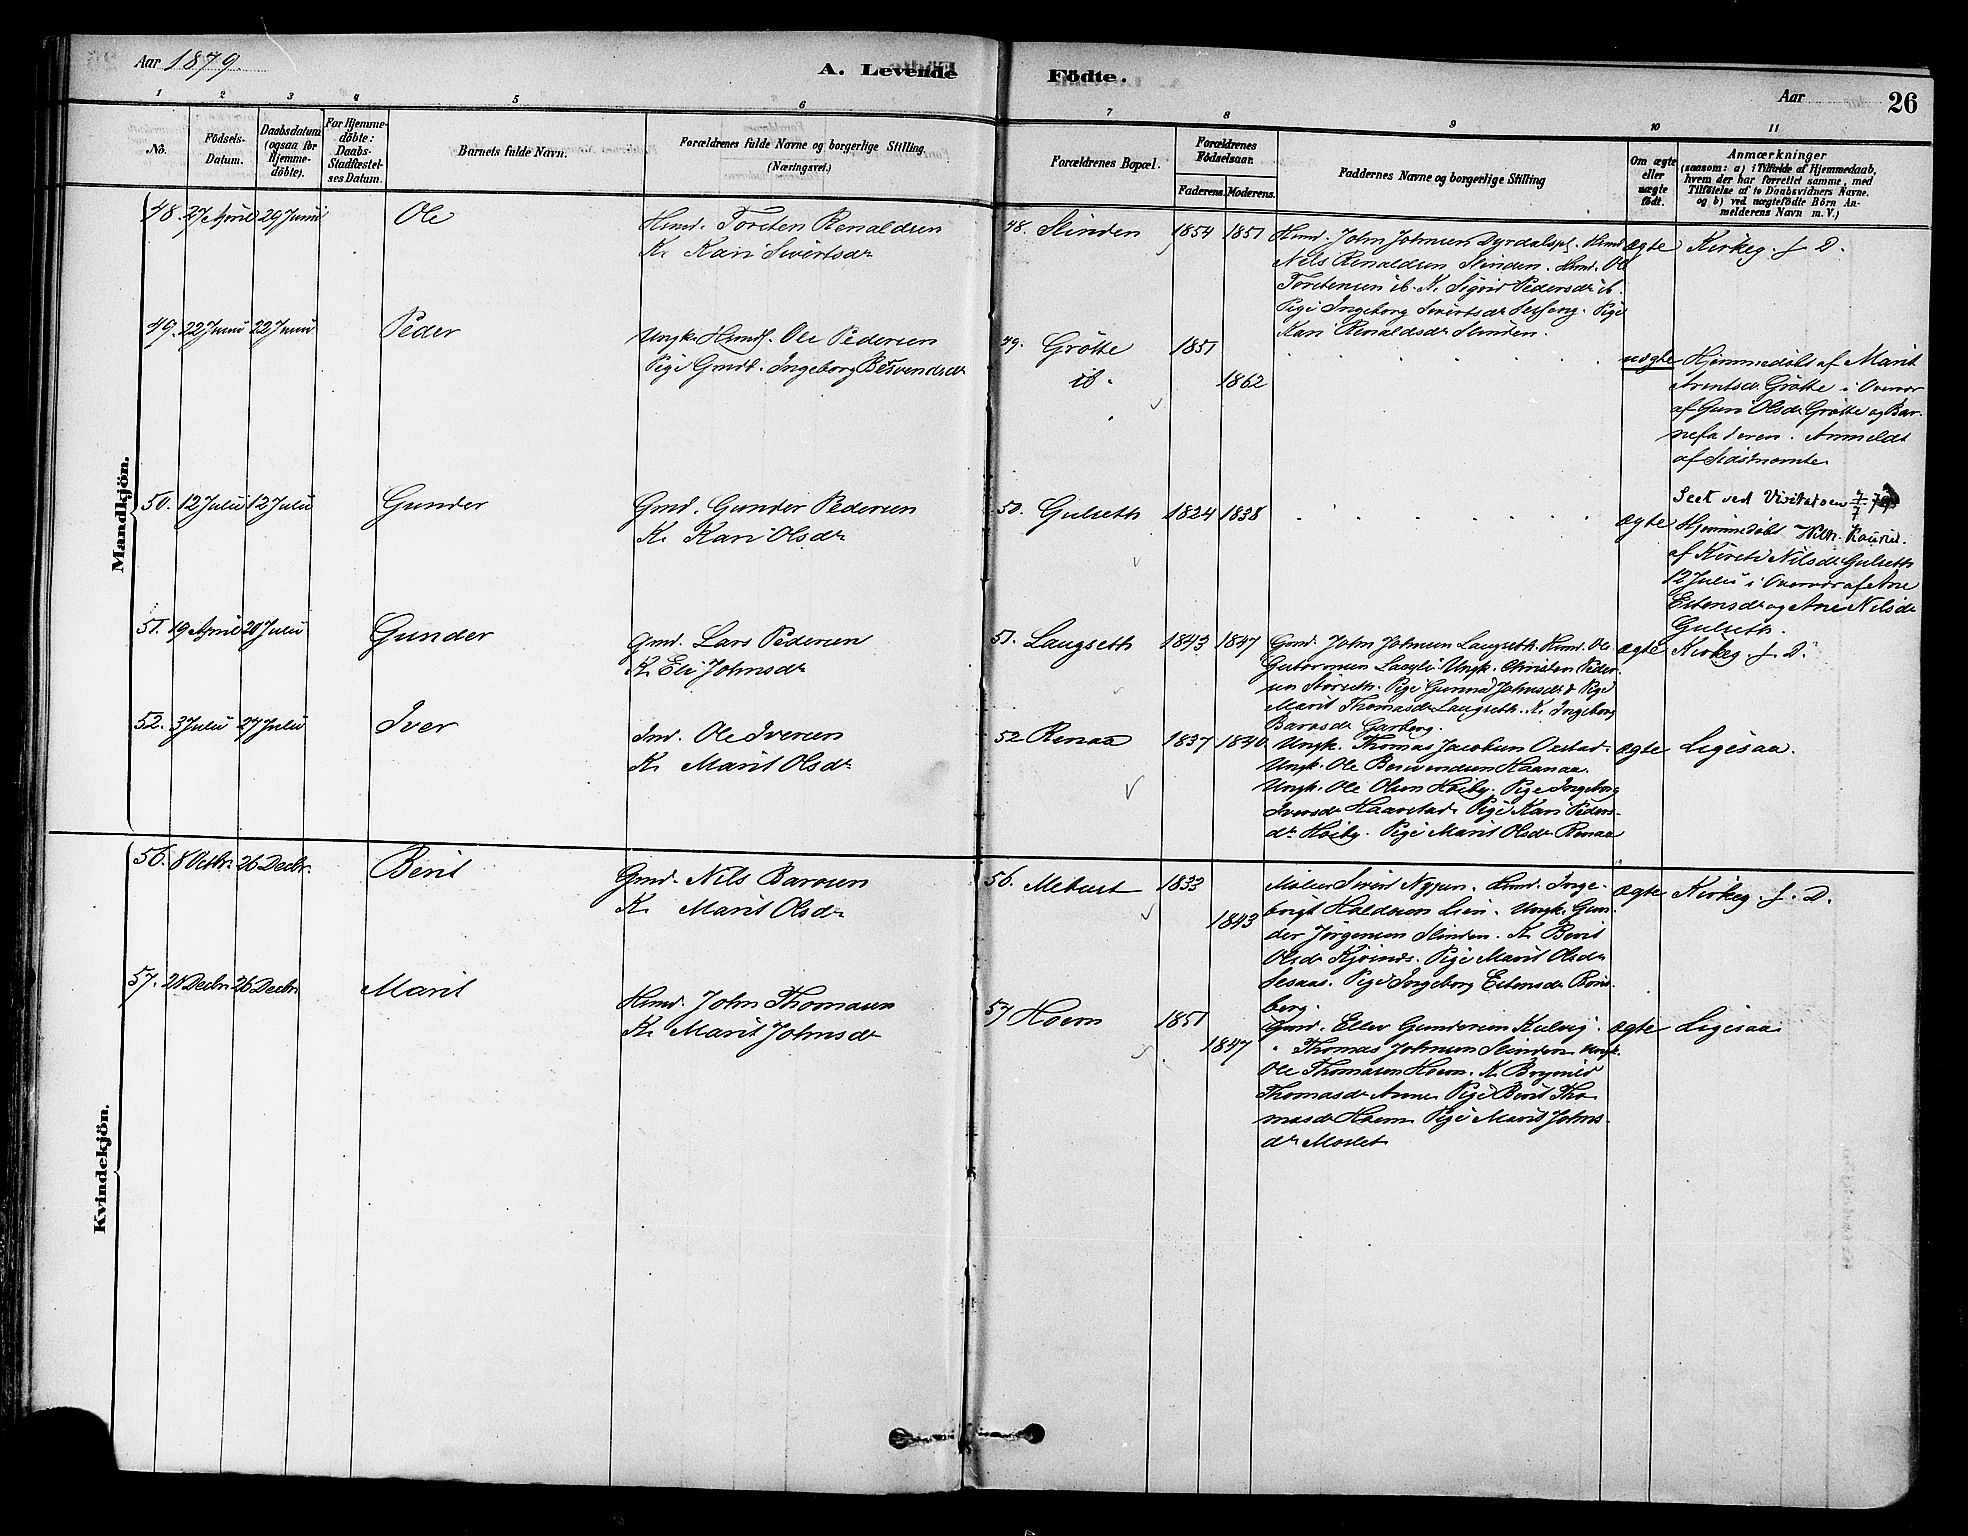 Aar 1879.
A. Levende Födte.
Aar
26
1 2 3 4 5 6 7 8 9 10 11
No.
Födsels-Datum.
Daabsdatum (ogsaa for Hjemmedöbte).
For Hjemmedöbte: Daabs-Stadfæstelses Datum.
Barnets fulde Navn.
Forældrenes fulde Navne og borgerlige Stilling. (Næringsvei.)
Forældrenes Bopæl.
Forældrenes Födselsaar.
Faderens. Moderens.
Faddernes Navne og borgerlige Stilling
Om ægte eller uægte födt.
Anmærkninger
(saasom: a) i Tilfælde af Hjemmedaab,
hvem der har forrettet samme, med
Tilföielse af to Daabsvidners Navne.
og b) ved uægtefödte Börn Anmelderens Navn m. V.)
Mandkjön.
48. 27 April 29 Juni
Ole
Husmd. Torsten Renaldsen
K. Kari Sivertsdr
48. Slinden 1854 1851
Husmd. John Johnsen Dyrdalspl. Husmd
Nils Renaldsen Slinden. Husmd. Ole
Torstensen ib. K. Sigrid Pedersdr ib.
Pige Ingeborg Sivertsdr Selseng. Pige
Kari Renaldsdr Slinden.
ægte
Kirkeg. f. D.
49. 22 Juni 22 Juni
Peder
Ungk. Husmdf. Ole Pedersen
Pige Gmdd. Ingeborg Besvendsdr
49. Grötte 1851
ib. 1862
uægte
Hjemmedöbt af Marit
Arentsdr Grötte i Overvær
af Guri Olsdr Grötte og Bar-
nefaderen. Anmeldt
af Sidstnævnte
50. 12 Juli 12 Juli
Gunder
Gmd. Gunder Pedersen
K. Kari Olsdr
50. Gulseth 1824 1838
ægte
Seet ved Visitatsen 7/7 79
Hjemmedöbt
af Kirsti Nilsdr Gulseth
12 Juli i Overvær af Ane
Estensdr og Ane Nilsdr
Gulseth.
51. 19 April 20 Juli
Gunder
Gmd. Lars Pedersen
K. Eli Johnsdr
51. Laugseth 1843 1847
Gmd. John Johnsen Laugseth. Husmd. Ole
Guttormsen Laugli. Ungk. Christen Peder-
sen Storseth. Pige Gunild Johnsdr & Pige
Marit Thomasdr Laugseth. K. Ingeborg
Baroasdr Garberg.
ægte
Kirkeg. f. D.
52. 3 Juli 27 Juli
Iver
Ind. Ole Iversen
K. Marit Olsdr
52 Renaa 1837 1840
Ungk. Thomas Jacobsen Oxstad.
Ungk. Ole Besvendsen Haanaa.
Ungk. Ole Olsen Höiby. Pige Ingeborg
Iversdr Haarstad. Pige Kari Peders-
dr Höiby. Pige Marit Olsdr Renaa
ægte
Ligesaa.
Kvindekjön.
56. 8 Octbr. 26 Decbr.
Berit
Gmd. Nils Barosen
K. Marit Olsdr
56. Mebust 1833
1843
Möller Sivert Nypan. Husmd. Inge-
brigt Haldosen Lien. Ungk. Gun-
der Jörgensen Slinden. K. Berit
Olsdr Kjösnes. Pige Marit Olsdr
Sesaas. Pige Ingeborg Estensdr Röns-
berg
ægte
Kirkeg. f. D.
57. 20 Decbr. 26 Decbr.
Marit
Husmd. John Thomasen
K. Marit Johnsdr
57 Hoem 1851
1847
Gmd. Ellev Gundersen Kulvig.
" Thomas Johnsen Slinden. Ungk.
Ole Thomasen Hoem. K. Brynild
Thomasdr Aune. Pige Berit Tho-
masdr Hoem. Pige Marit Johns-
dr Moslet
ægte
Ligesaa